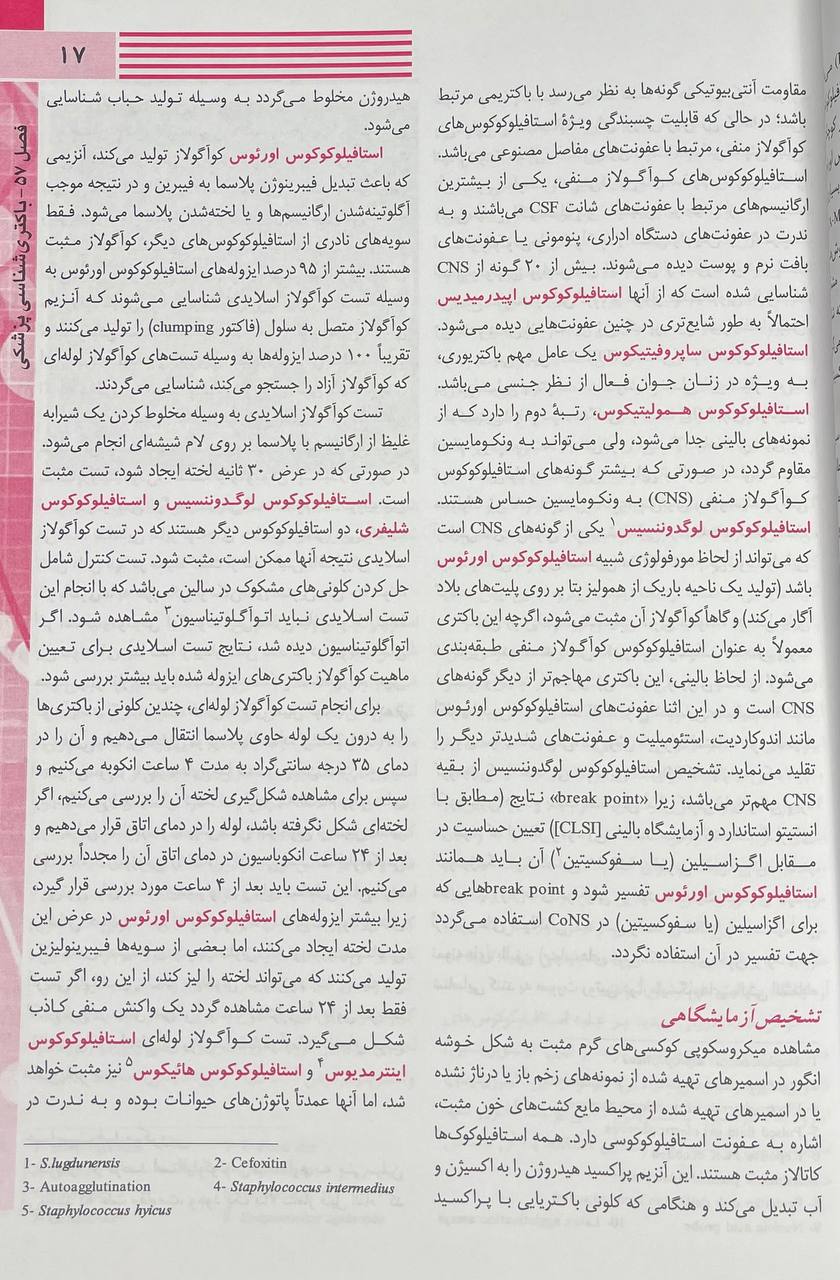 ۱۷
فصل ۵۷ - باکتری‌شناسی پزشکی
مقاومت آنتی‌بیوتیکی گونه‌ها به نظر می‌رسد با باکتریمی مرتبط
باشد؛ در حالی که قابلیت چسبندگی ویژهٔ استافیلوکوکوس‌های
کوآگولاز منفی، مرتبط با عفونت‌های مفاصل مصنوعی می‌باشد.
استافیلوکوکوس‌های کوآگولاز منفی، یکی از بیشترین
ارگانیسم‌های مرتبط با عفونت‌های شانت CSF می‌باشند و به
ندرت در عفونت‌های دستگاه ادراری، پنومونی یا عفونت‌های
بافت نرم و پوست دیده می‌شوند. بیش از ۲۰ گونه از CNS
شناسایی شده است که از آنها استافیلوکوکوس اپیدرمیدیس
احتمالاً به طور شایع‌تری در چنین عفونت‌هایی دیده می‌شود.
استافیلوکوکوس ساپروفیتیکوس یک عامل مهم باکتریوری،
به ویژه در زنان جوان فعال از نظر جنسی می‌باشد.
استافیلوکوکوس همولیتیکوس، رتبهٔ دوم را دارد که از
نمونه‌های بالینی جدا می‌شود، ولی می‌تواند به ونکومایسین
مقاوم گردد، در صورتی که بیشتر گونه‌های استافیلوکوکوس
کوآگولاز منفی (CNS) به ونکومایسین حساس هستند.
استافیلوکوکوس لوگدوننسیس۱ یکی از گونه‌های CNS است
که می‌تواند از لحاظ مورفولوژی شبیه استافیلوکوکوس اورئوس
باشد (تولید یک ناحیه باریک از همولیز بتا بر روی پلیت‌های بلاد
آگار می‌کند) و گاهاً کوآگولاز آن مثبت می‌شود، اگرچه این باکتری
معمولاً به عنوان استافیلوکوکوس کوآگولاز منفی طبقه‌بندی
می‌شود. از لحاظ بالینی، این باکتری مهاجم‌تر از دیگر گونه‌های
CNS است و در این اثنا عفونت‌های استافیلوکوکوس اورئوس
مانند اندوکاردیت، استئومیلیت و عفونت‌های شدیدتر دیگر را
تقلید می‌نماید. تشخیص استافیلوکوکوس لوگدوننسیس از بقیه
CNS مهم‌تر می‌باشد، زیرا «break point» نتایج (مطابق با
انستیتو استاندارد و آزمایشگاه بالینی [CLSI]) تعیین حساسیت در
مقابل اگزاسیلین (یا سفوکسیتین۲) آن باید همانند
استافیلوکوکوس اورئوس تفسیر شود و break pointهایی که
برای اگزاسیلین (یا سفوکسیتین) در CoNS استفاده می‌گردد
جهت تفسیر در آن استفاده نگردد.
تشخیص آزمایشگاهی
مشاهده میکروسکوپی کوکسی‌های گرم مثبت به شکل خوشه
انگور در اسمیرهای تهیه شده از نمونه‌های زخم باز یا درناژ نشده
یا در اسمیرهای تهیه شده از محیط مایع کشت‌های خون مثبت،
اشاره به عفونت استافیلوکوکوسی دارد. همه استافیلوکوک‌ها
کاتالاز مثبت هستند. این آنزیم پراکسید هیدروژن را به اکسیژن و
آب تبدیل می‌کند و هنگامی که کلونی باکتریایی با پراکسید
هیدروژن مخلوط می‌گردد به وسیله تولید حباب شناسایی
می‌شود.
استافیلوکوکوس اورئوس کوآگولاز تولید می‌کند، آنزیمی
که باعث تبدیل فیبرینوژن پلاسما به فیبرین و در نتیجه موجب
آگلوتینه‌شدن ارگانیسم‌ها و یا لخته‌شدن پلاسما می‌شود. فقط
سویه‌های نادری از استافیلوکوکوس‌های دیگر، کوآگولاز مثبت
هستند. بیشتر از ۹۵ درصد ایزوله‌های استافیلوکوکوس اورئوس به
وسیله تست کوآگولاز اسلایدی شناسایی می‌شوند که آنزیم
کوآگولاز متصل به سلول (فاکتور clumping) را تولید می‌کنند و
تقریباً ۱۰۰ درصد ایزوله‌ها به وسیله تست‌های کوآگولاز لوله‌ای
که کوآگولاز آزاد را جستجو می‌کند، شناسایی می‌گردند.
تست کوآگولاز اسلایدی به وسیله مخلوط کردن یک شیرابه
غلیظ از ارگانیسم با پلاسما بر روی لام شیشه‌ای انجام می‌شود.
در صورتی که در عرض ۳۰ ثانیه لخته ایجاد شود، تست مثبت
است. استافیلوکوکوس لوگدوننسیس و استافیلوکوکوس
شلیفری، دو استافیلوکوکوس دیگر هستند که در تست کوآگولاز
اسلایدی نتیجه آنها ممکن است، مثبت شود. تست کنترل شامل
حل کردن کلونی‌های مشکوک در سالین می‌باشد که با انجام این
تست اسلایدی نباید اتوآگلوتیناسیون۳ مشاهده شود. اگر
اتوآگلوتیناسیون دیده شد، نتایج تست اسلایدی برای تعیین
ماهیت کوآگولاز باکتری‌های ایزوله شده باید بیشتر بررسی شود.
برای انجام تست کوآگولاز لوله‌ای، چندین کلونی از باکتری‌ها
را به درون یک لوله حاوی پلاسما انتقال می‌دهیم و آن را در
دمای ۳۵ درجه سانتی‌گراد به مدت ۴ ساعت انکوبه می‌کنیم و
سپس برای مشاهده شکل‌گیری لخته آن را بررسی می‌کنیم، اگر
لخته‌ای شکل نگرفته باشد، لوله را در دمای اتاق قرار می‌دهیم و
بعد از ۲۴ ساعت انکوباسیون در دمای اتاق آن را مجدداً بررسی
می‌کنیم. این تست باید بعد از ۴ ساعت مورد بررسی قرار گیرد،
زیرا بیشتر ایزوله‌های استافیلوکوکوس اورئوس در عرض این
مدت لخته ایجاد می‌کنند، اما بعضی از سویه‌ها فیبرینولیزین
تولید می‌کنند که می‌تواند لخته را لیز کند، از این رو، اگر تست
فقط بعد از ۲۴ ساعت مشاهده گردد یک واکنش منفی کاذب
شکل می‌گیرد. تست کوآگولاز لوله‌ای استافیلوکوکوس
اینترمدیوس۴ و استافیلوکوکوس هائیکوس۵ نیز مثبت خواهد
شد، اما آنها عمدتاً پاتوژن‌های حیوانات بوده و به ندرت در
1- S.lugdunensis 2- Cefoxitin
3- Autoagglutination 4- Staphylococcus intermedius
5- Staphylococcus hyicus